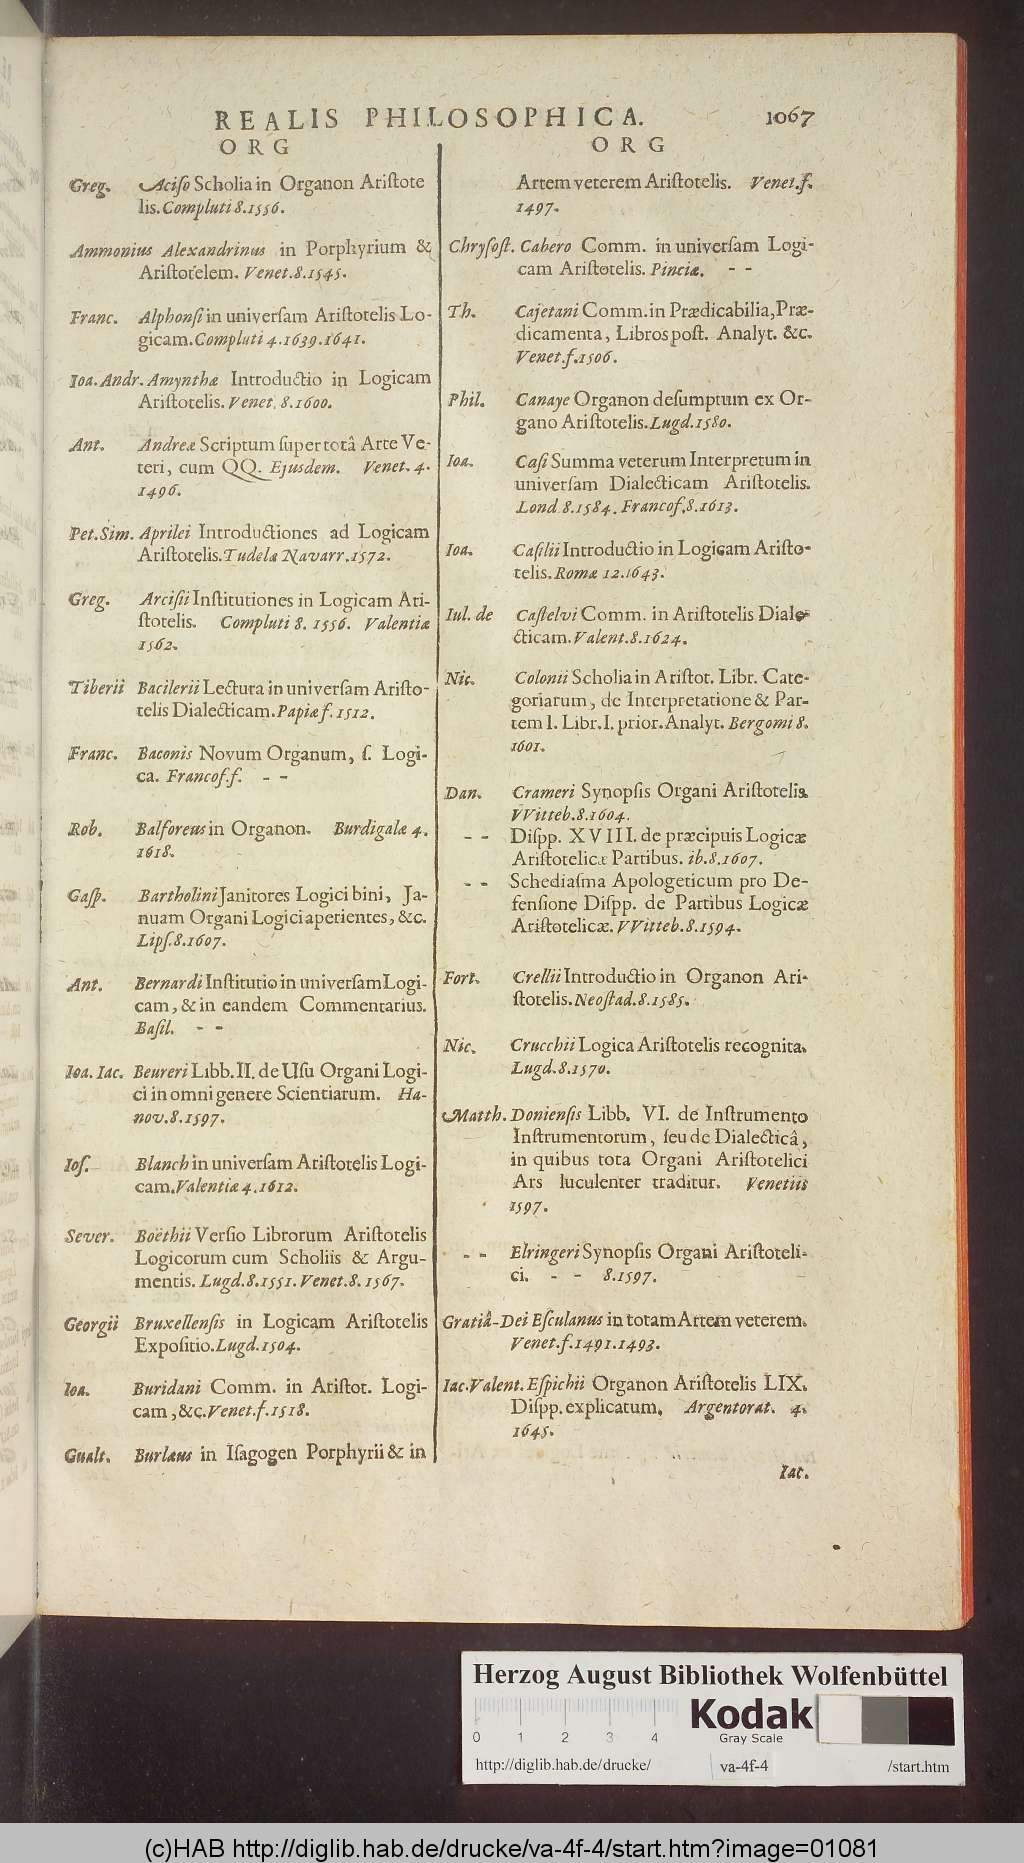 REALIS PHILOSOPHICA. 1067
ORG
Greg. Aciſo Scholia in Organon Ariſtote
lis. Compluti 8. 1556.
Ammonius Alexandrinus in Porphyrium &
Ariſtotelem. Venet. 8. 1545.
Franc. Alphonſi in univerſam Ariſtotelis Lo-
gicam. Compluti 4. 1639. 1641.
Ioa. Andr. Amynthæ Introductio in Logicam
Ariſtotelis. Venet. 8. 1600.
Ant. Andreæ Scriptum ſuper totâ Arte Ve-
teri, cum QQ. Ejusdem. Venet. 4.
1496.
Pet. Sim. Aprilei Introductiones ad Logicam
Ariſtotelis. Tudelæ Navarr. 1572.
Greg. Arciſii Inſtitutiones in Logicam Ari-
ſtotelis. Compluti 8. 1556. Valentiæ
1562.
Tiberii Bacilerii Lectura in univerſam Ariſto-
telis Dialecticam. Papiæ f. 1512.
Franc. Baconis Novum Organum, ſ. Logi-
ca. Francof. f. - -
Rob. Balforeus in Organon. Burdigalæ 4.
1618.
Gaſp. Bartholini Janitores Logici bini, Ja-
nuam Organi Logici aperientes, &c.
Lipſ. 8. 1607.
Ant. Bernardi Inſtitutio in univerſam Logi-
cam, & in eandem Commentarius.
Baſil. - -
Ioa. Iac. Beureri Libb. II. de Uſu Organi Logi-
ci in omni genere Scientiarum. Ha-
nov. 8. 1597.
Ioſ. Blanch in univerſam Ariſtotelis Logi-
cam. Valentiæ 4. 1612.
Sever. Boëthii Verſio Librorum Ariſtotelis
Logicorum cum Scholiis & Argu-
mentis. Lugd. 8. 1551. Venet. 8. 1567.
Georgii Bruxellenſis in Logicam Ariſtotelis
Expoſitio. Lugd. 1504.
Ioa. Buridani Comm. in Ariſtot. Logi-
cam, &c. Venet. f. 1518.
Gualt. Burlæus in Iſagogen Porphyrii & in
ORG
Artem veterem Ariſtotelis. Venet. f.
1497.
Chryſoſt. Cabero Comm. in univerſam Logi-
cam Ariſtotelis. Pinciæ. - -
Th. Cajetani Comm. in Prædicabilia, Præ-
dicamenta, Libros poſt. Analyt. &c.
Venet. f. 1506.
Phil. Canaye Organon deſumptum ex Or-
gano Ariſtotelis. Lugd. 1580.
Ioa. Caſi Summa veterum Interpretum in
univerſam Dialecticam Ariſtotelis.
Lond. 8. 1584. Francof. 8. 1613.
Ioa. Caſilii Introductio in Logicam Ariſto-
telis. Romæ 12. 1643.
Iul. de Caſtelvi Comm. in Ariſtotelis Diale-
cticam. Valent. 8. 1624.
Nic. Colonii Scholia in Ariſtot. Libr. Cate-
goriarum, de Interpretatione & Par-
tem I. Libr. I. prior. Analyt. Bergomi 8.
1601.
Dan. Crameri Synopſis Organi Ariſtotelis
VVitteb. 8. 1604.
- - Diſpp. XVIII. de præcipuis Logicæ
Ariſtotelicæ Partibus. ib. 8. 1607.
- - Schediaſma Apologeticum pro De-
fenſione Diſpp. de Partibus Logicæ
Ariſtotelicæ. VVitteb. 8. 1594.
Fort. Crellii Introductio in Organon Ari-
ſtotelis. Neoſtad. 8. 1585.
Nic. Crucchii Logica Ariſtotelis recognita.
Lugd. 8. 1570.
Matth. Donienſis Libb. VI. de Inſtrumento
Inſtrumentorum, ſeu de Dialecticâ,
in quibus tota Organi Ariſtotelici
Ars luculenter traditur. Venetiis
1597.
- - Elringeri Synopſis Organi Ariſtoteli-
ci. - - 8. 1597.
Gratiâ-Dei Eſculanus in totam Artem veterem.
Venet. f. 1491. 1493.
Iac. Valent. Eſpichii Organon Ariſtotelis LIX.
Diſpp. explicatum. Argentorat. 4.
1645.
Iac.
Herzog August Bibliothek Wolfenbüttel
0 1 2 3 4
Kodak
Gray Scale
http://diglib.hab.de/drucke/ va-4f-4 /start.htm
(c)HAB http://diglib.hab.de/drucke/va-4f-4/start.htm?image=01081